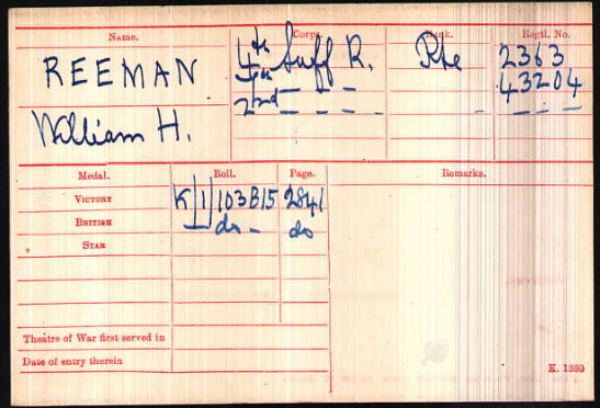 Name. Corps. Rank. Regtl. No.
REEMAN 4th Suff R. Pte 2363
7th – – – 43204
William H. 2nd – – – – – – –
Medal. Roll. Page. Remarks.
VICTORY K/1/103B15 2841
BRITISH do – do
STAR
Theatre of War first served in
Date of entry therein
K. 1380